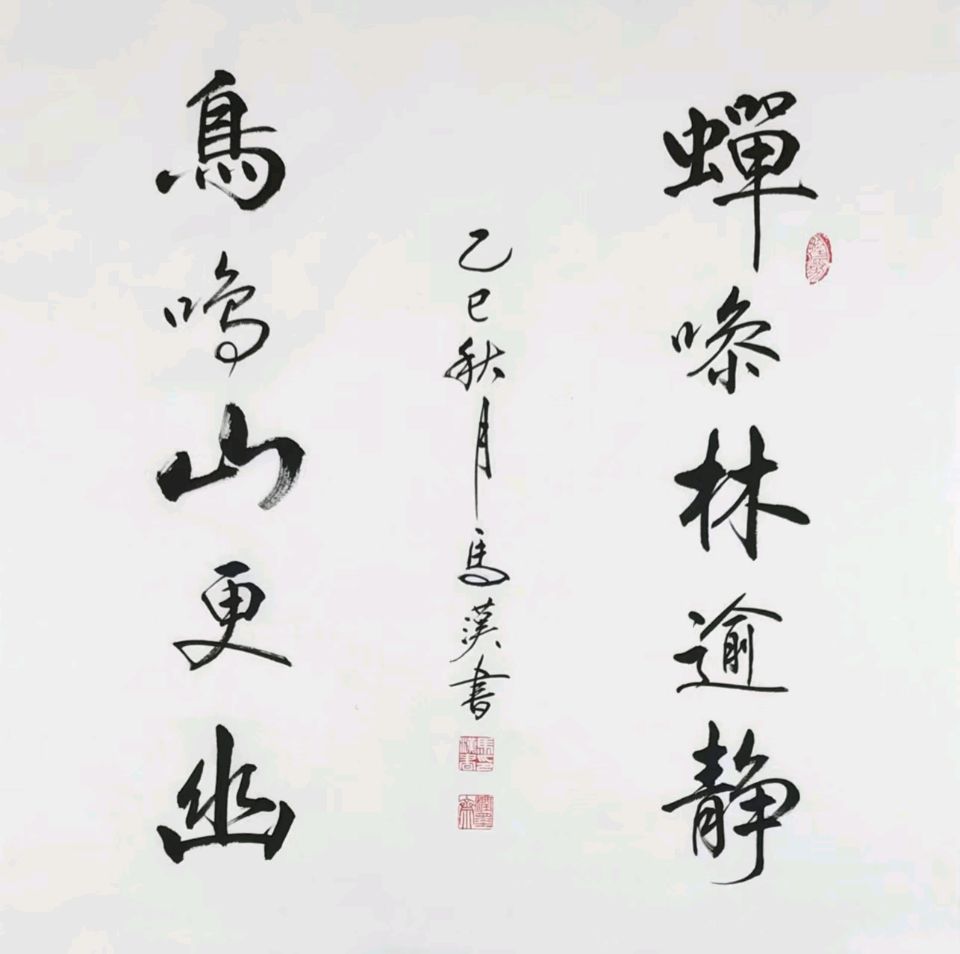 蟬噪林逾静
鳥鳴山更幽
乙巳秋月馬漢書